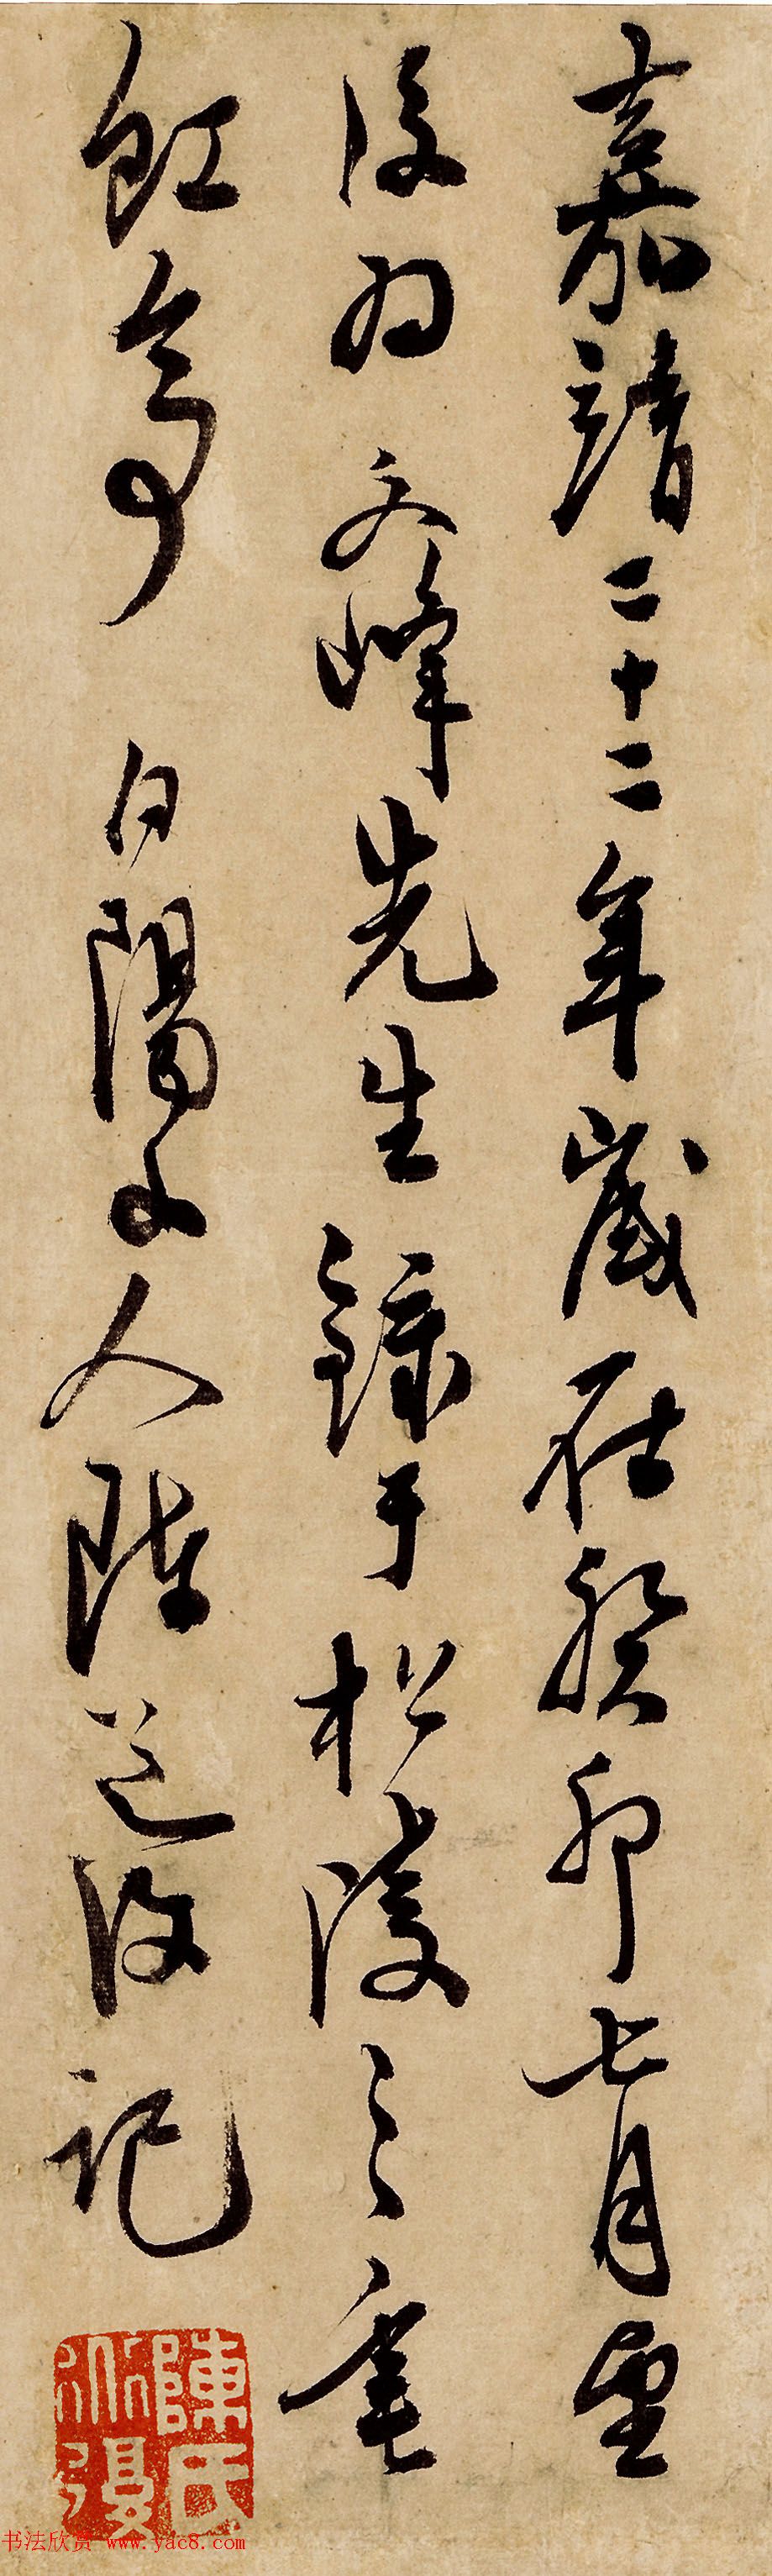 嘉靖二十二年歲在癸卯七月望
後為文峰先生錄于松陵之垂
虹亭 白陽山人陳道復記
陳氏道復
书法欣赏 www.yac8.com